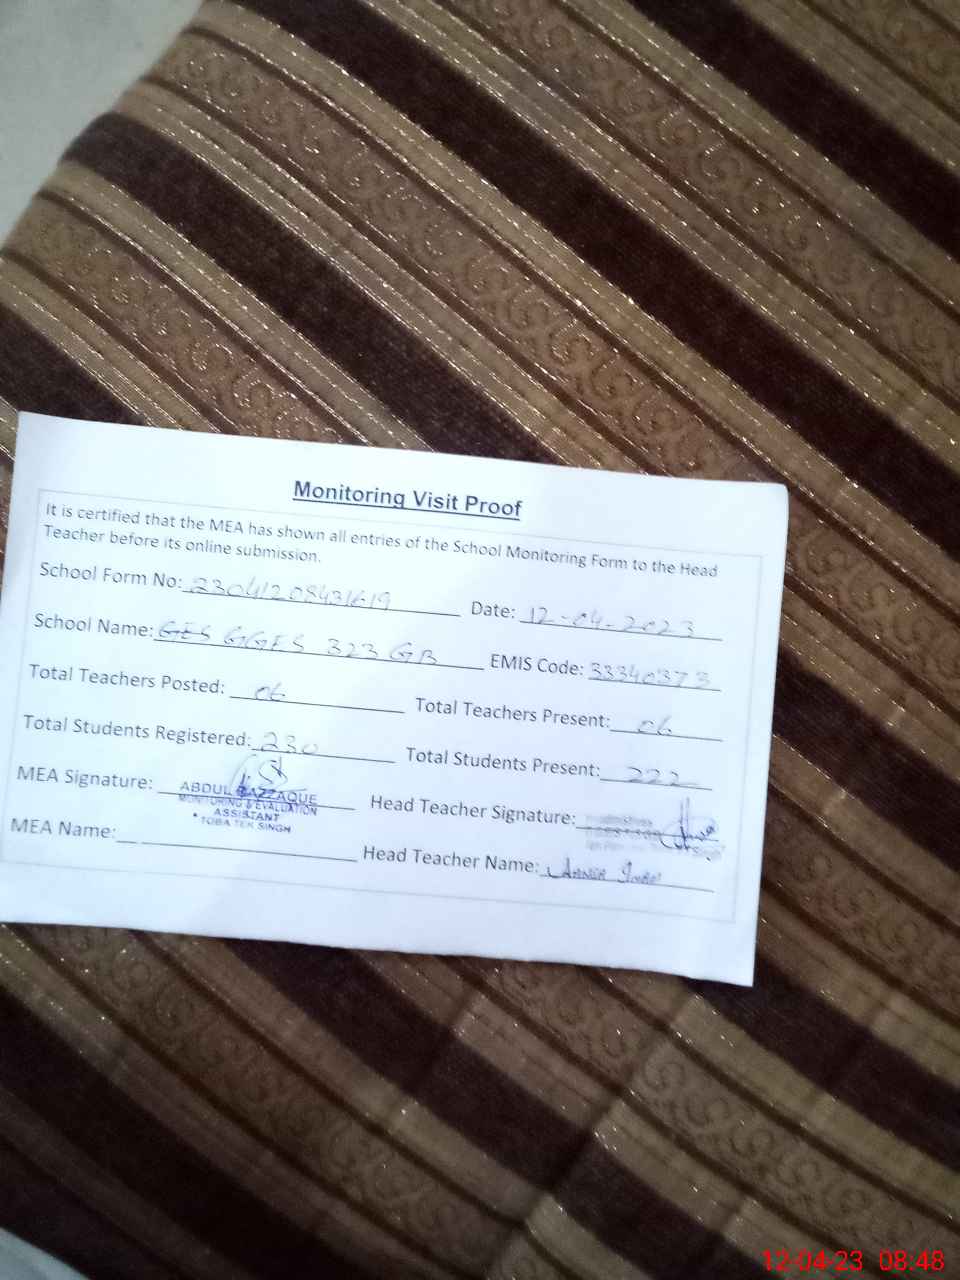 Monitoring Visit Proof
It is certified that the MEA has shown all entries of the School Monitoring Form to the Head
Teacher before its online submission.
School Form No: 23041208431619 Date: 12-04-2023
School Name: GES GGES 323 GB EMIS Code: 33340373
Total Teachers Posted: 06 Total Teachers Present: 06
Total Students Registered: 230 Total Students Present: 222
MEA Signature: Head Teacher Signature:
ABDUL RAZZAQUE
MONITORING & EVALUATION
ASSISTANT
TOBA TEK SINGH
MEA Name: Head Teacher Name:
12-04-23 08:48